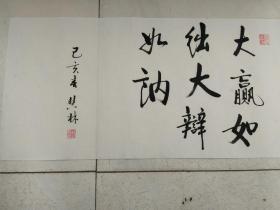 大赢如
绌大辩
如訥
己亥春其林